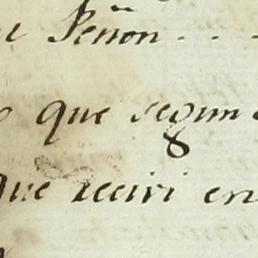 Señon . . .
que segun
que reciví en